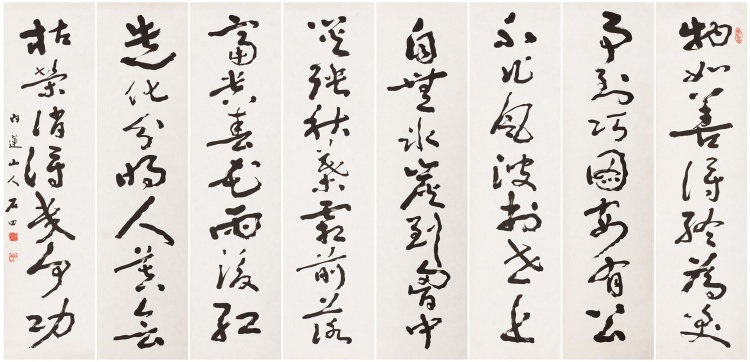 物如善得終為美
事到巧圖安有公
不作風波於世上
自無冰炭到胸中
災殃秋葉霜前落
富貴春花雨後紅
造化分明人莫會
枯榮消得幾何功
蓮山人石田